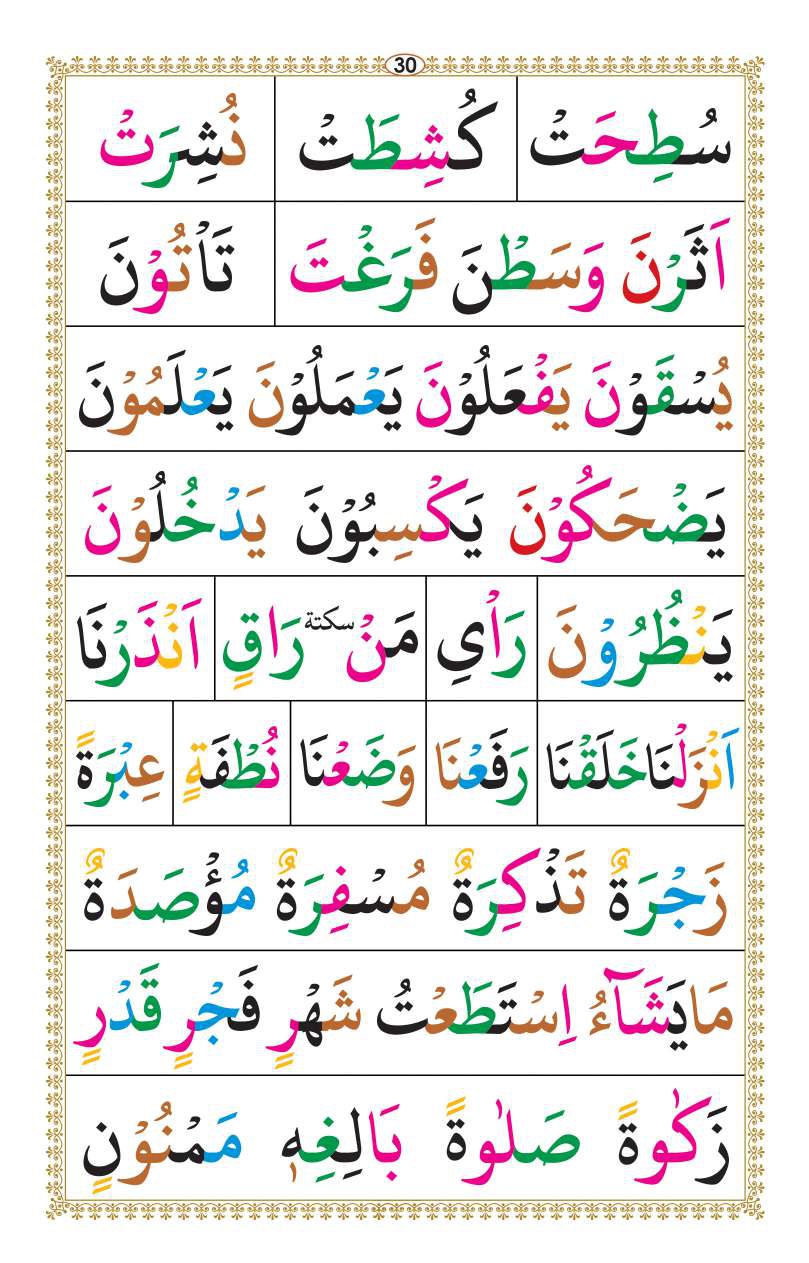 30
سُطِحَتْ كُشِطَتْ نُشِرَتْ
اَثَرْنَ وَسَطْنَ فَرَغْتَ تَأْتُوْنَ
يُسْقَوْنَ يَفْعَلُوْنَ يَعْمَلُوْنَ يَعْلَمُوْنَ
يَضْحَكُوْنَ يَكْسِبُوْنَ يَدْخُلُوْنَ
يَنْظُرُوْنَ رَاْیِ مَنْ سكتة رَاقٍ اَنْذَرْنَا
اَنْزَلْنَا خَلَقْنَا رَفَعْنَا وَضَعْنَا نُطْفَةٍ عِبْرَةً
زَجْرَةٌ تَذْكِرَةٌ مُسْفِرَةٌ مُؤْصَدَةٌ
مَايَشَآءُ اِسْتَطَعْتُ شَهْرٍ فَجْرٍ قَدْرٍ
زَكٰوةً صَلٰوةً بَالِغِهٖ مَمْنُوْنٍ